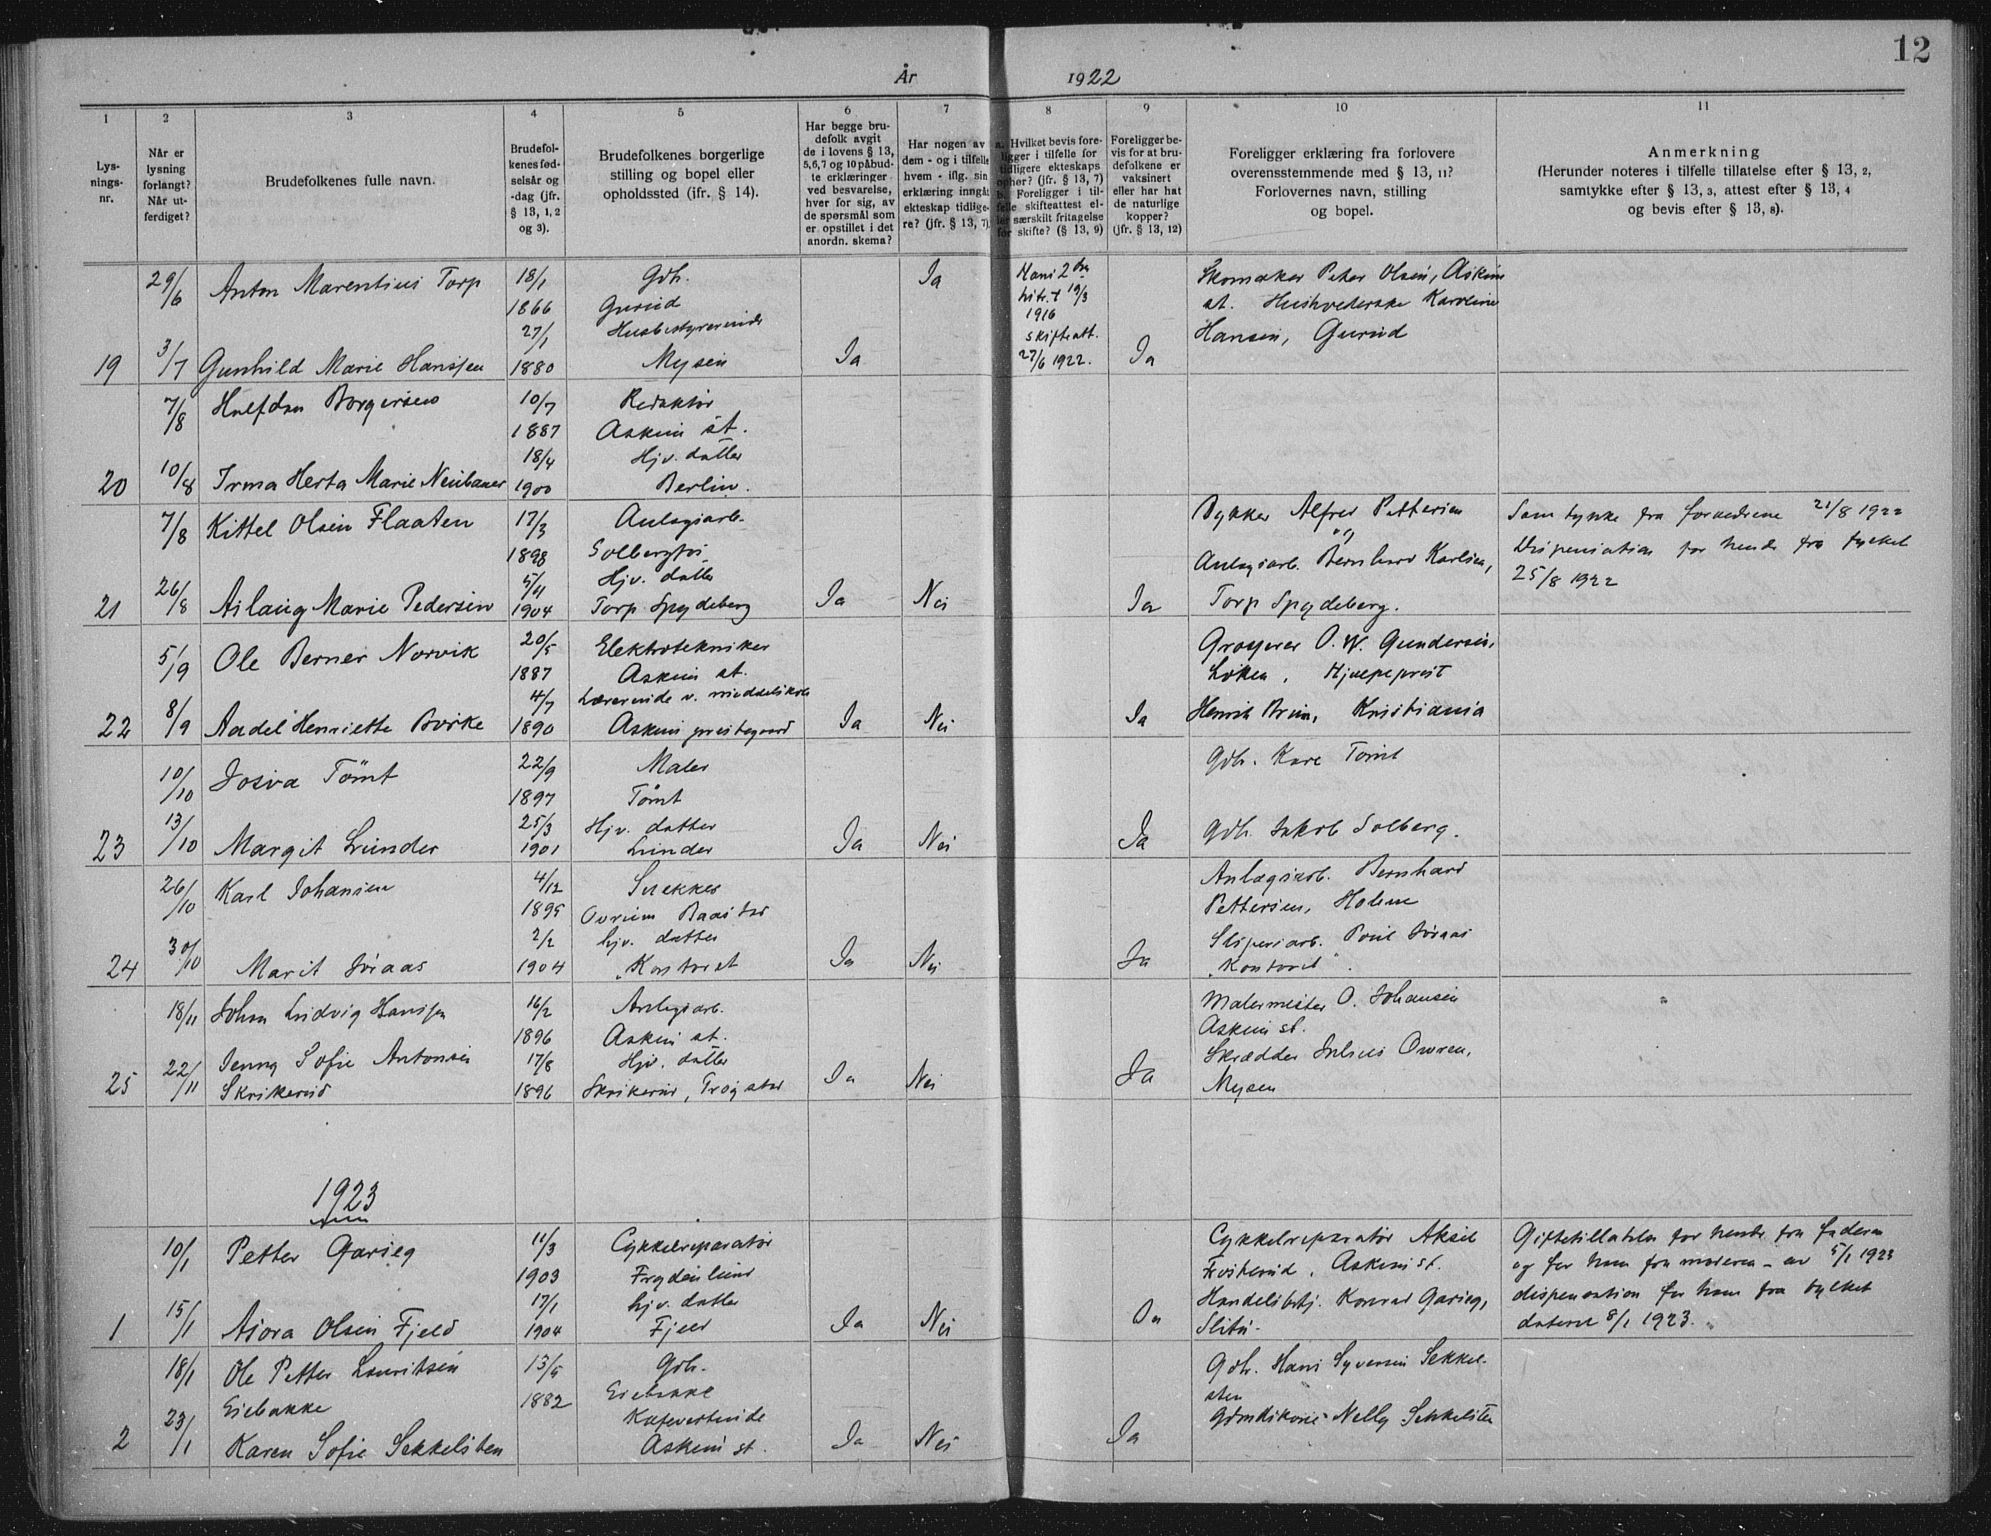 12
År 1922
1 2 3 4 5 6 7 8 9 10 11
Lys-
nings-
nr.
Når er
lysning
forlangt?
Når ut-
ferdiget?
Brudefolkenes fulle navn.
Brudefol-
kenes fød-
selsår og
-dag (jfr.
§ 13, 1, 2
og 3).
Brudefolkenes borgerlige
stilling og bopel eller
opholdssted (ifr. § 14).
Har begge bru-
defolk avgit
de i lovens § 13,
5, 6, 7 og 10 påbud-
te erklæringer
ved besvarelse,
hver for sig, av
de spørsmål som
er opstillet i det
anordn. skema?
Har nogen av
dem - og i tilfelle
hvem - iflg. sin
erklæring inngåt
ekteskap tidlige-
re? (jfr. § 13, 7).
a. Hvilket bevis fore-
ligger i tilfelle for
tidligere ekteskaps
ophør? (jfr. § 13, 7)
b. Foreligger i til-
felle skifteattest el-
ler særskilt fritagelse
for skifte? (§ 13, 9)
Foreligger be-
vis for at bru-
defolkene er
vaksinert
eller har hat
de naturlige
kopper?
(jfr. § 13, 12)
Foreligger erklæring fra forlovere
overensstemmende med § 13, 11?
Forlovernes navn, stilling
og bopel.
Anmerkning
(Herunder noteres i tilfelle tillatelse efter § 13, 2,
samtykke efter § 13, 3, attest efter § 13, 4
og bevis efter § 13, 8).
29/6 Anton Marentius Torp 18/1 1866 Gdbr. Gurud Ja
19 3/7 Gunhild Marie Hanssen 27/1 1880 Husbestyrerinde Mysen Ja
Hans 2den
hustr. † 19/3
1916
skifteatt.
27/6 1922.
Ja
Skomaker Peter Olsen, Askim
st. Karoline
Hansen, Gurud
7/8 Halfdan Borgersen 10/7 1887 Redaktør Askim st.
20 10/8 Irma Herta Marie Neubauer 18/4 1900 Hjv. datter Berlin.
7/8 Kittel Olsen Flaaten 17/3 1898 Anlegsarb. Solbergfos
21 26/8 Aslaug Marie Pedersen 5/11 1904 Hjv. datter Torp Spydeberg Ja Nei Ja
Dykker Alfred Pettersen
og
Anlegsarb. Bernhard Karlsen,
Torp Spydeberg.
Samtykke fra forældrene 21/8 1922
Dispensation for hende fra fylket
25/8 1922
5/9 Ole Berner Norvik 20/5 1887 Elektrotekniker Askim st.
22 8/9 Aadel Henriette Borke 4/7 1890 Lærerinde v. middelskole Askim prestegaard Ja Nei Ja
Grosserer O. W. Gundersen,
Løken, Hjælpeprest
Henrik Brun, Kristiania
10/10 Josva Tömt 22/9 1897 Maler Tömt
23 13/10 Margit Lunder 25/3 1901 Hjv. datter Lunder Ja Nei Ja
Gdbr. Kare Tömt
Gdb. Jakob Solberg.
26/10 Karl Johansen 4/12 1895 Snekker Ovrum Baastad
24 30/10 Marit Joraas 2/2 1904 hjv. datter "Kontoret Ja Nei Ja
Anlægsarb. Bernhard
Pettersen, Holene
Sliperiarb. Poul Joraas
"Kontoret".
18/11 Johan Ludvig Hanssen 16/2 1896 Anlegsarb. Askim st.
25 22/11 Jenny Sofie Antonsen
Skrikerud 17/8 1896 Hjv. datter Skrikerud, Trøgstad Ja Nei Ja
Malermester O. Johansen
Askim st.
Skrædder Julius Ovren,
Mysen
1923
10/1 Petter Garseg 11/3 1903 Cykkelreparatør Frydenlund
1 15/1 Asora Olsen Fjeld 17/1 1904 hjv. datter Fjeld Ja Nei Ja
Cykkelreparatør Aksel
Froskerud, Askim st.
Handelsbetj. Konrad Garseg,
Slitu.
Giftetillatelse for hende fra faderen
og for ham fra moderen - av 5/1 1923
dispensation for ham fra fylket
dateret 8/1 1923.
18/1 Ole Petter Lauritsen
Eiebakke 13/5 1882 Gdbr. Eiebakke
2 23/1 Karen Sofie Sekkelsten Kafévertinde Askim st. Ja Nei Ja
Gdbr. Hans Syversen Sekkel-
sten
Gdmdskone Nelly Sekkelsten